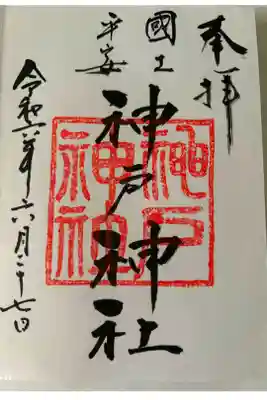 奉拝
國土
平安
神戸神社
神戸神社
令和六年六月二十七日